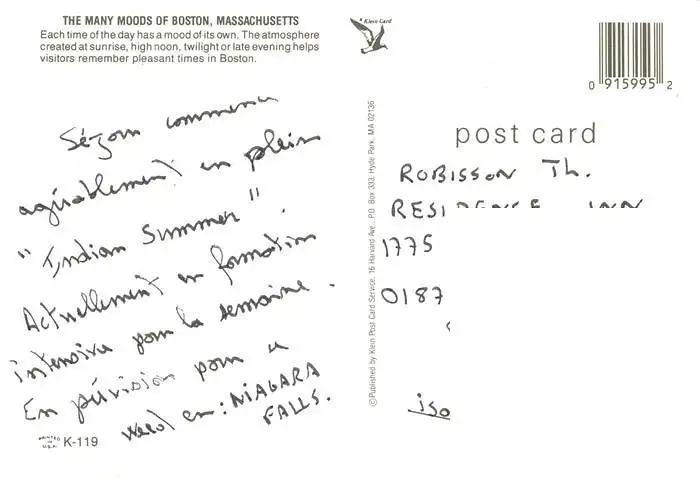 THE MANY MOODS OF BOSTON, MASSACHUSETTS
Each time of the day has a mood of its own. The atmosphere
created at sunrise, high noon, twilight or late evening helps
visitors remember pleasant times in Boston.
Séjour commence
agréablement en plein
"Indian Summer".
Actuellement en formation
intensive pour la semaine.
En prévision pour ce
week en: NIAGARA
FALLS.
PRINTED IN U.S.A.
K-119
© Published by Klein Post Card Service, 16 Harvard Ave., P.O. Box 333, Hyde Park, MA 02136
Klein Card
0 915995 2
post card
ROBISSON Th.
RESIDENCE INN
1775
0187